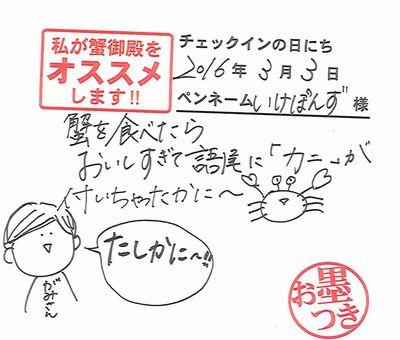 私が蟹御殿を
オススメ
します!!
チェックインの日にち
2016年3月3日
ペンネームいけぽんず様
蟹を食べたら
おいしすぎて語尾に「カニ」が
付いちゃったかに〜
たしかに〜!!
がみさん
お墨つき